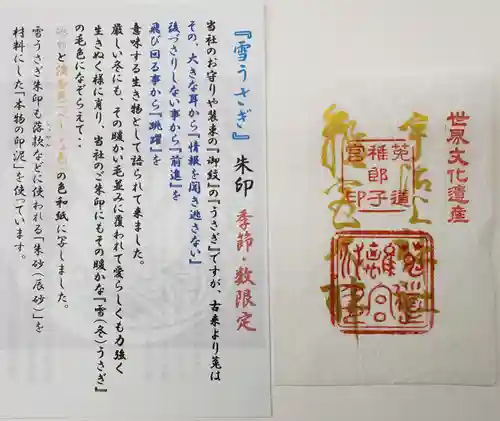 『雪うさぎ』朱印 季節・数限定
当社のお守りや装束の『御紋』の『うさぎ』ですが、古来より莵は
その、大きな耳から『情報を聞き逃さない』
後づさりしない事から『前進』を
飛び回る事から『跳躍』を
意味する生き物として語られて来ました。
厳しい冬にも、その暖かい毛並みに覆われて愛らしくも力強く
生きぬく様に肖り、当社のご朱印にもその暖かな『雪(冬)うさぎ』
の毛色になぞらえて‥
の色和紙に写しました。
雪うさぎ朱印も落款などに使われる『朱砂(辰砂)』を
材料にした『本物の印泥』を使っています。
世界文化遺産
宇治上神社
莵道
稚郎子
宮印